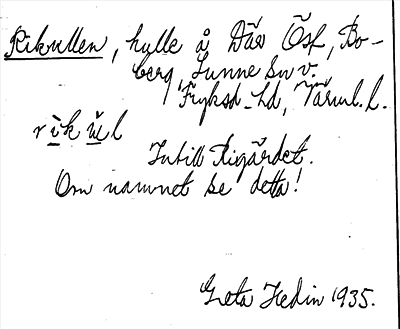 Rikullen, kulle å Där Ösf, Bo-
berg, Sunne sn v.
Fryksd. hd, Värml. l.
rikŭl
Intill Rigärdet.
Om namnet se detta!
Greta Hedin 1935.